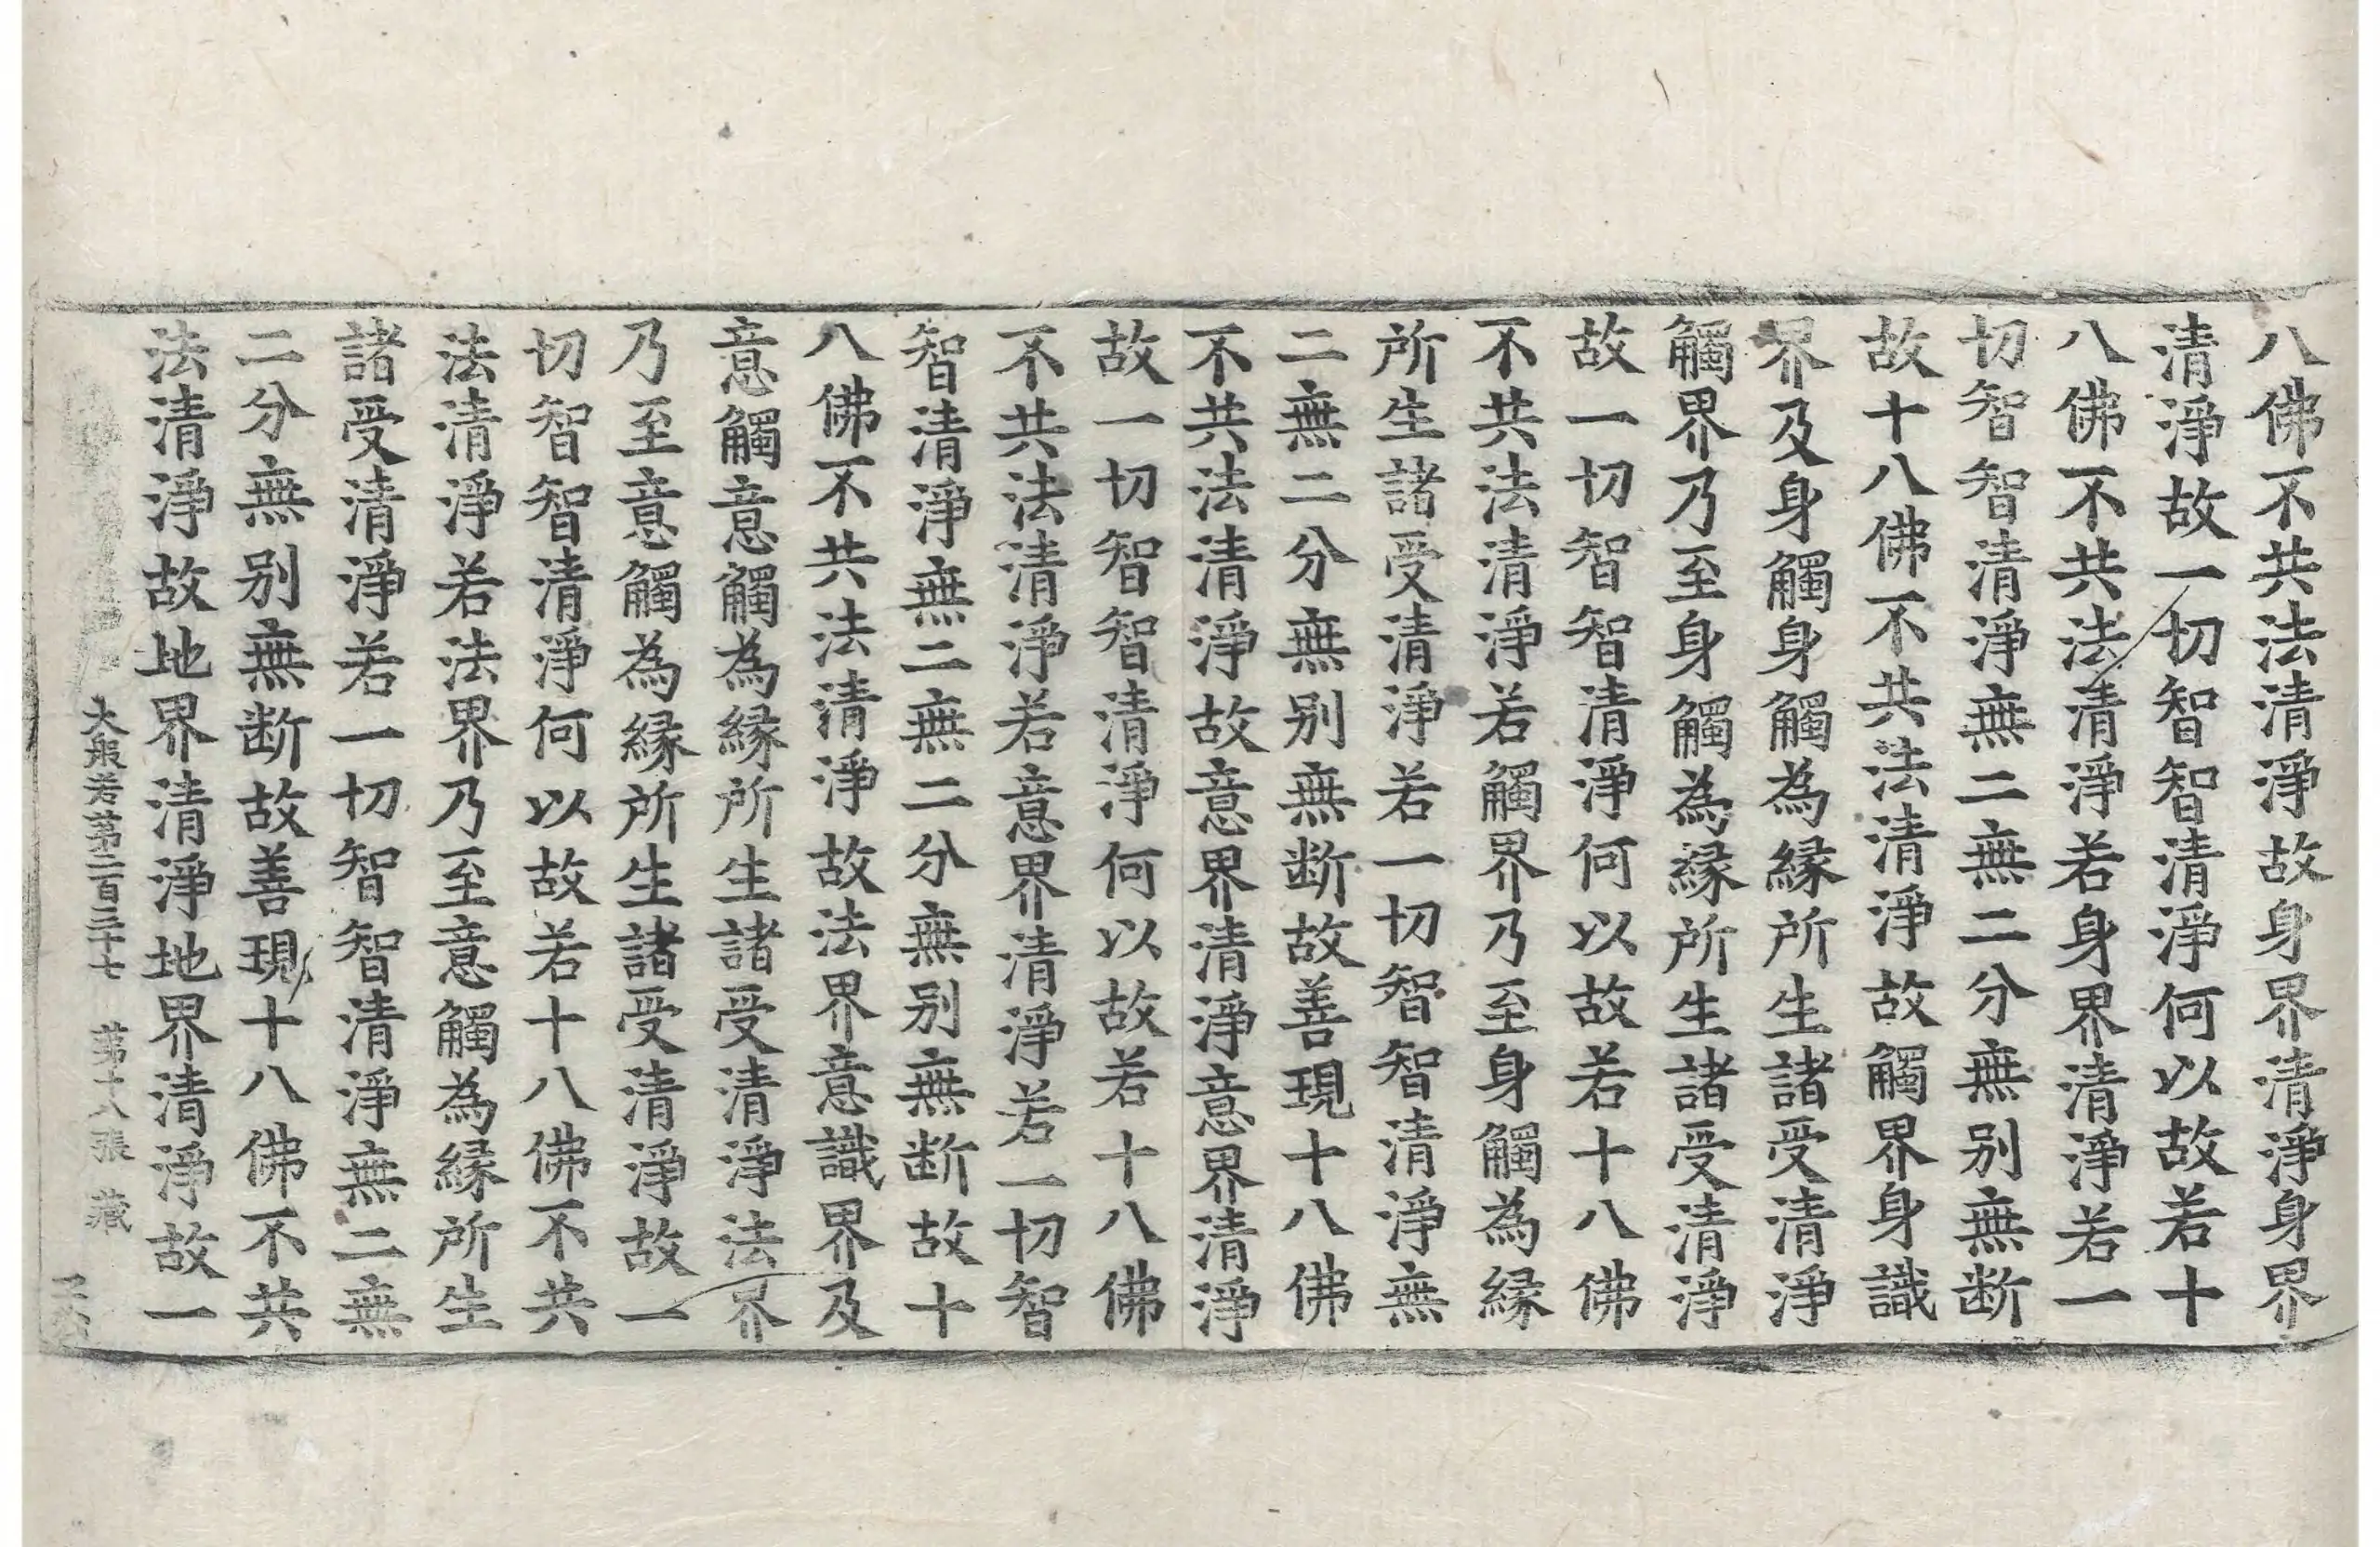 八佛不共法清淨故身界清淨身界
清淨故一切智智清淨何以故若十
八佛不共法清淨若身界清淨若一
切智智清淨無二無二分無别無断
故十八佛不共法清淨故觸界身識
界及身觸身觸為緣所生諸受清淨
觸界乃至身觸為緣所生諸受清淨
故一切智智清淨何以故若十八佛
不共法清淨若觸界乃至身觸為緣
所生諸受清淨若一切智智清淨無
二無二分無别無断故善現十八佛
不共法清淨故意界清淨意界清淨
故一切智智清淨何以故若十八佛
不共法清淨若意界清淨若一切智
智清淨無二無二分無别無断故十
八佛不共法清淨故法界意識界及
意觸意觸為緣所生諸受清淨法界
乃至意觸為緣所生諸受清淨故一
切智智清淨何以故若十八佛不共
法清淨若法界乃至意觸為緣所生
諸受清淨若一切智智清淨無二無
二分無别無断故善現十八佛不共
法清淨故地界清淨地界清淨故一
大般若第二百三十七 第十八張 藏